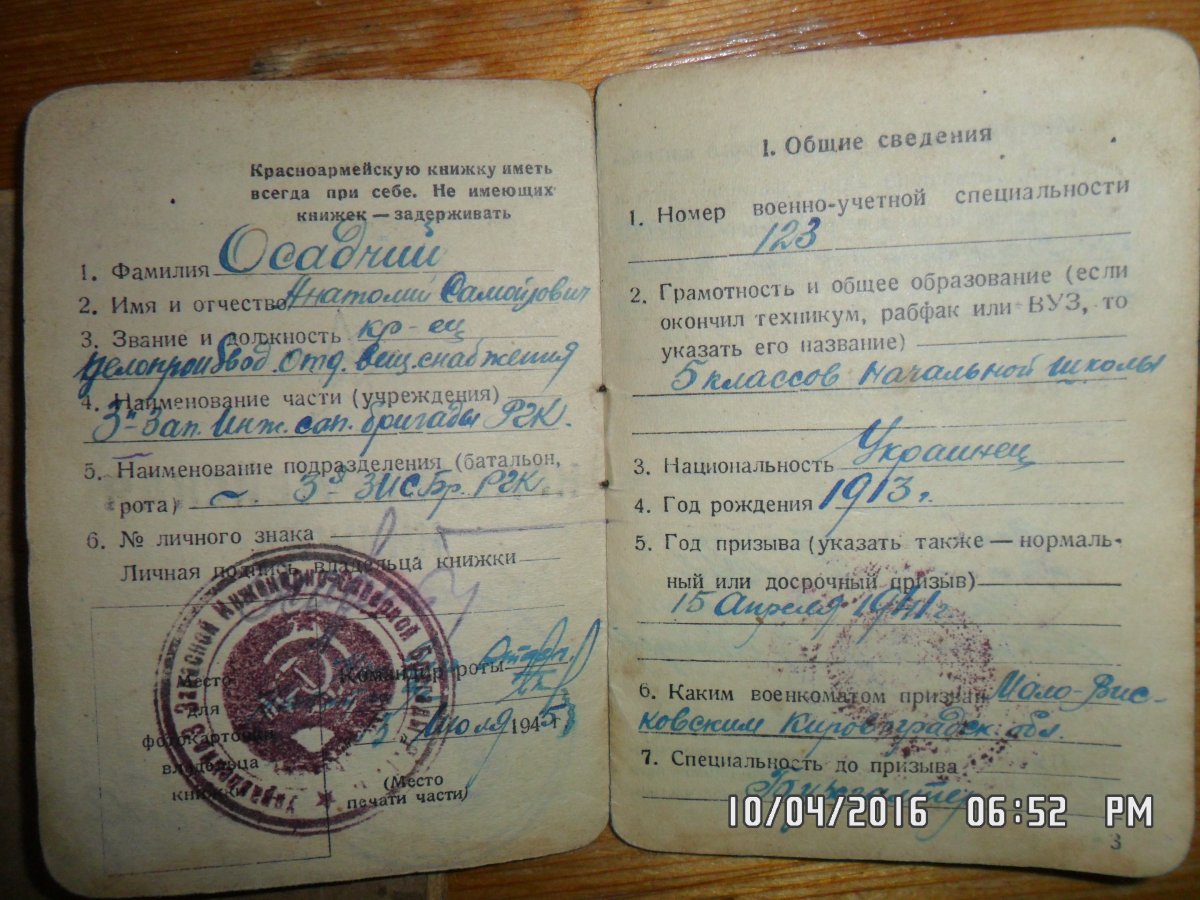 Красноармейскую книжку иметь
всегда при себе. Не имеющих
книжек — задерживать
1. Фамилия Осадчий
2. Имя и отчество Анатолий Самойлович
3. Звание и должность кр-ец
делопроизвод. отд. вещ. снабжения
4. Наименование части (учреждения)
3й Зап. Инж. сап. бригады РГК.
5. Наименование подразделения (батальон,
рота) 3я ЗИСБр. РГК
6. № личного знака
Личная подпись владельца книжки
Место
для
фотокарточки
владельца
книжки
Командир роты
5 Июля 1945 г
(Место
печати части)
Запасной Инженерно-Саперной
I. Общие сведения
1. Номер военно-учетной специальности
123
2. Грамотность и общее образование (если
окончил техникум, рабфак или ВУЗ, то
указать его название)
5 классов начальной школы
3. Национальность Украинец
4. Год рождения 1913 г.
5. Год призыва (указать также — нормаль-
ный или досрочный призыв)
15 Апреля 1941 г
6. Каким военкоматом призван Мало-Вис-
ковским Кировоградск. обл.
7. Специальность до призыва
Бухгалтер
3
10/04/2016 06:52 PM